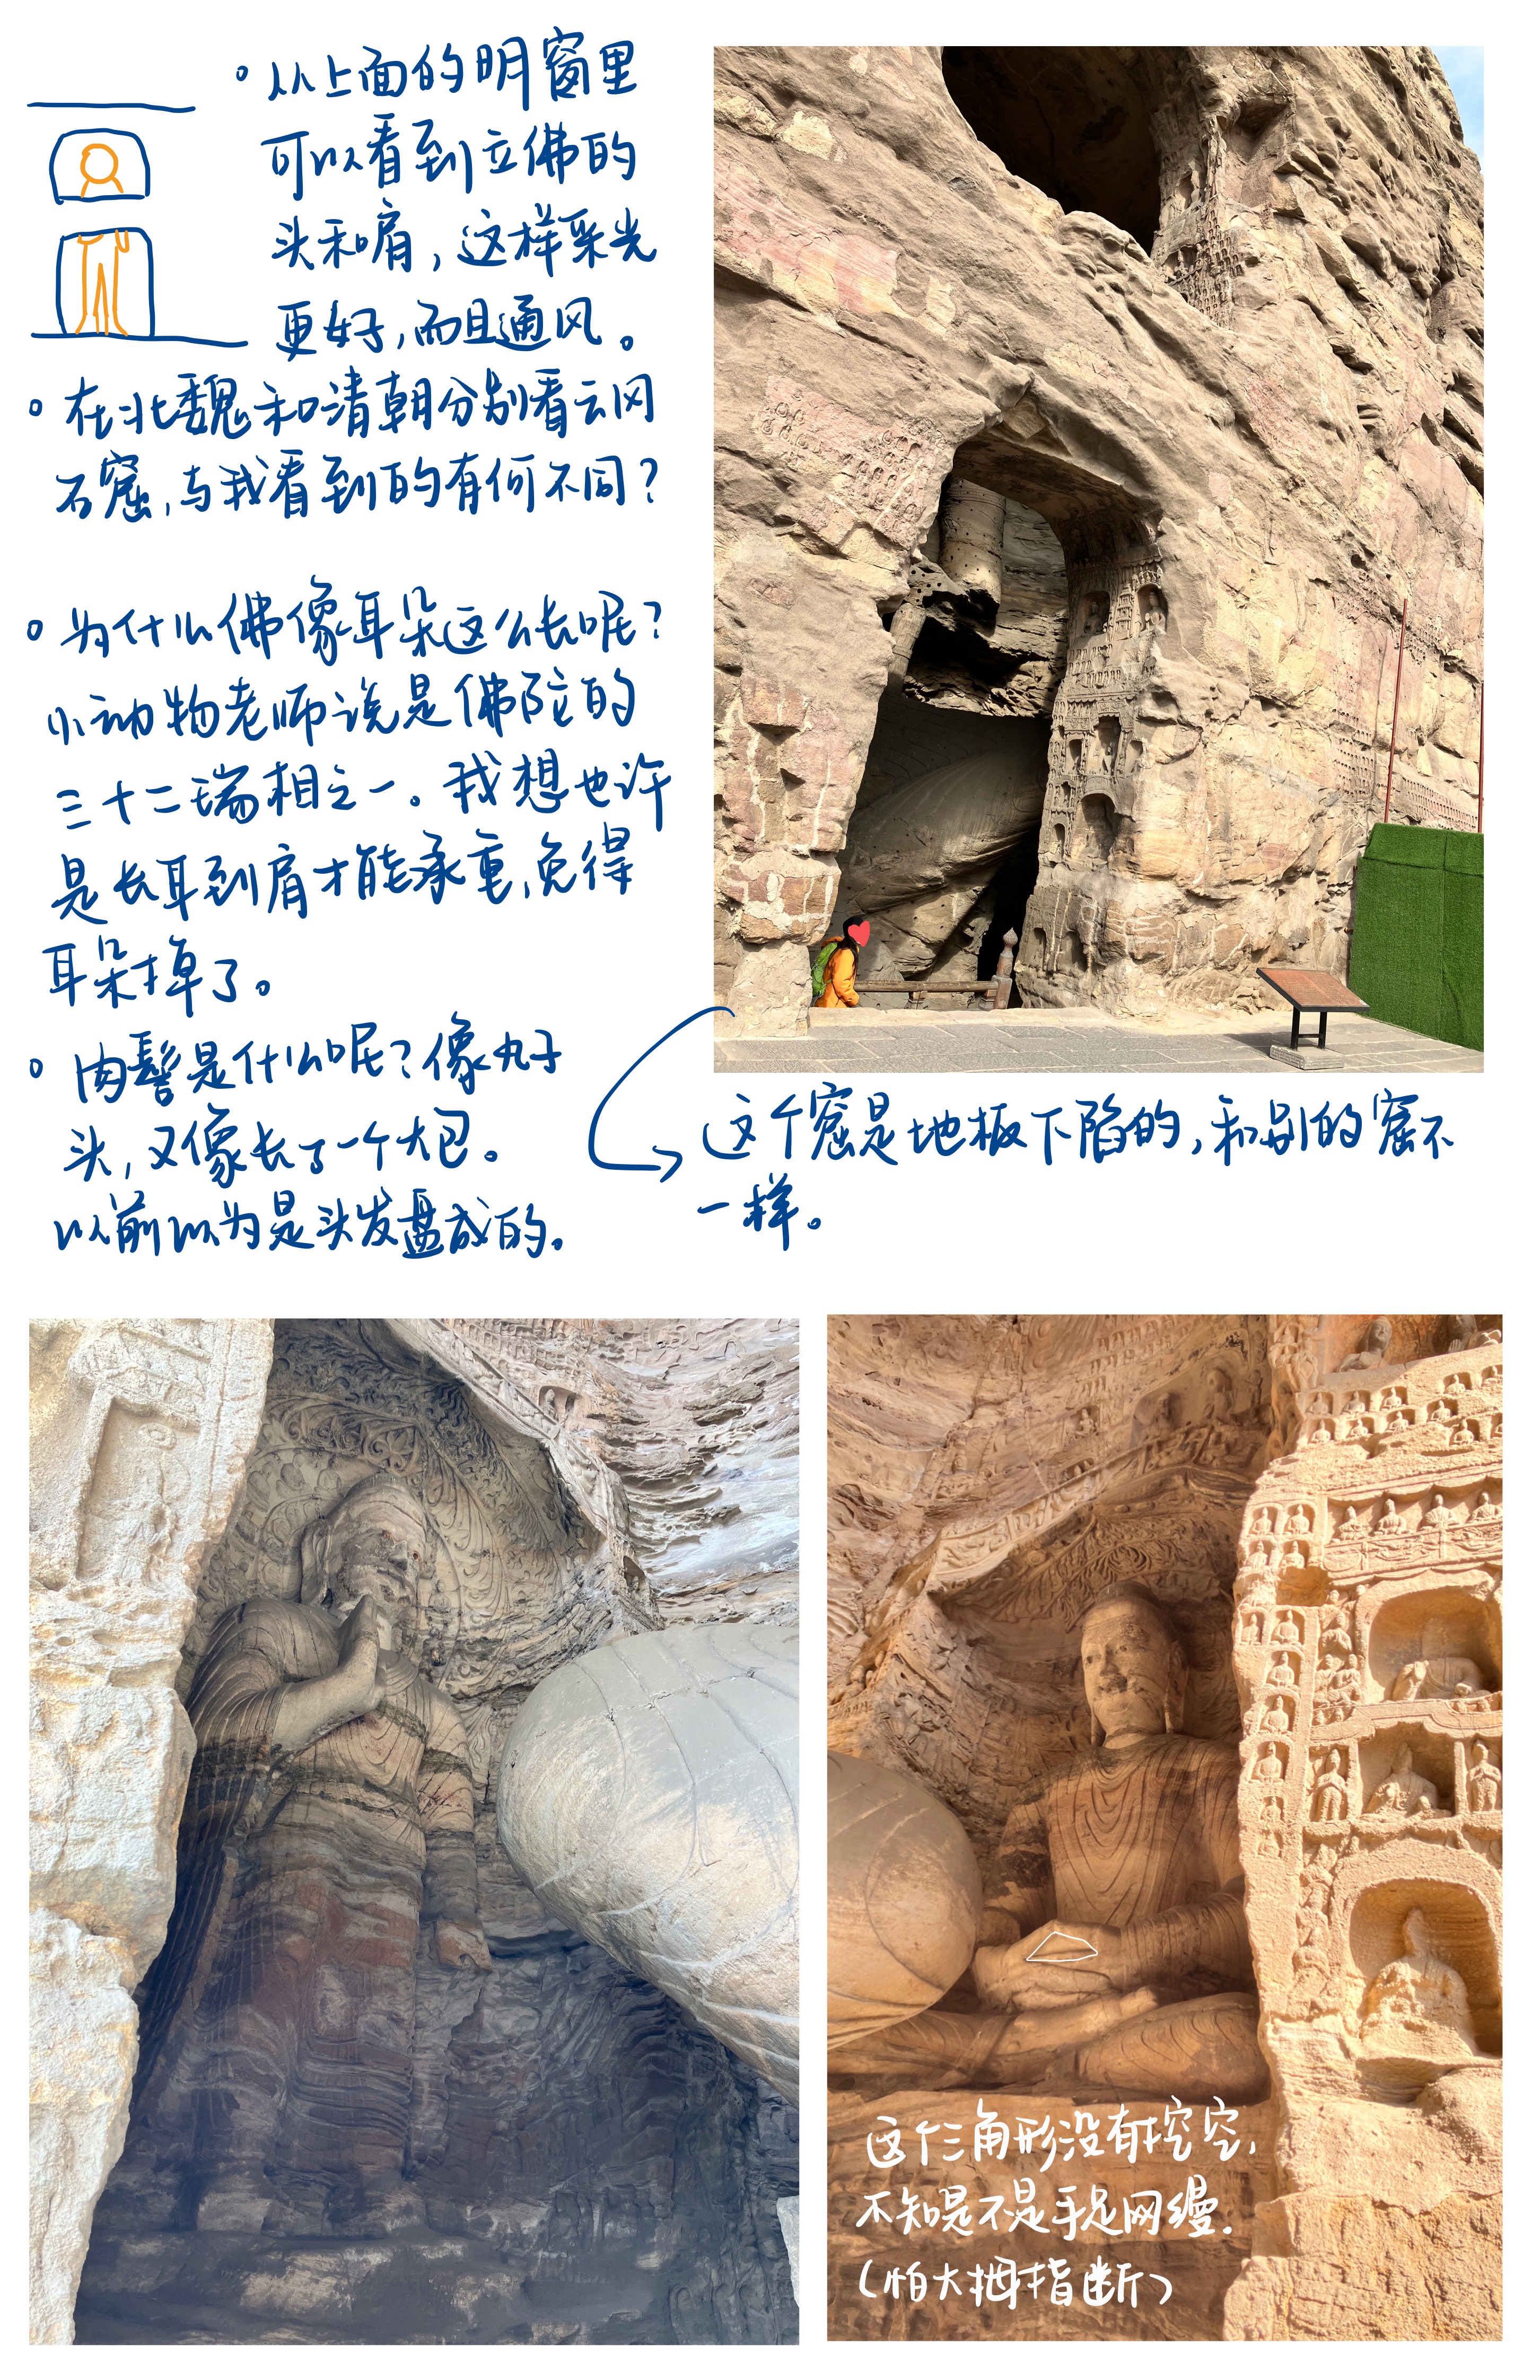 。从上面的明窗里
可以看到立佛的
头和肩，这样采光
更好，而且通风。
。在北魏和清朝分别看云冈
石窟，与我看到的有何不同？
。为什么佛像耳朵这么长呢？
小动物老师说是佛陀的
三十二瑞相之一。我想也许
是长耳到肩才能承重，免得
耳朵掉了。
。肉髻是什么呢？像丸子
头，又像长了一个大包。
以前以为是头发盘成的。
这个窟是地板下陷的，和别的窟不
一样。
这个三角形没有挖空，
不知是不是手足网缦.
（怕大拇指断）